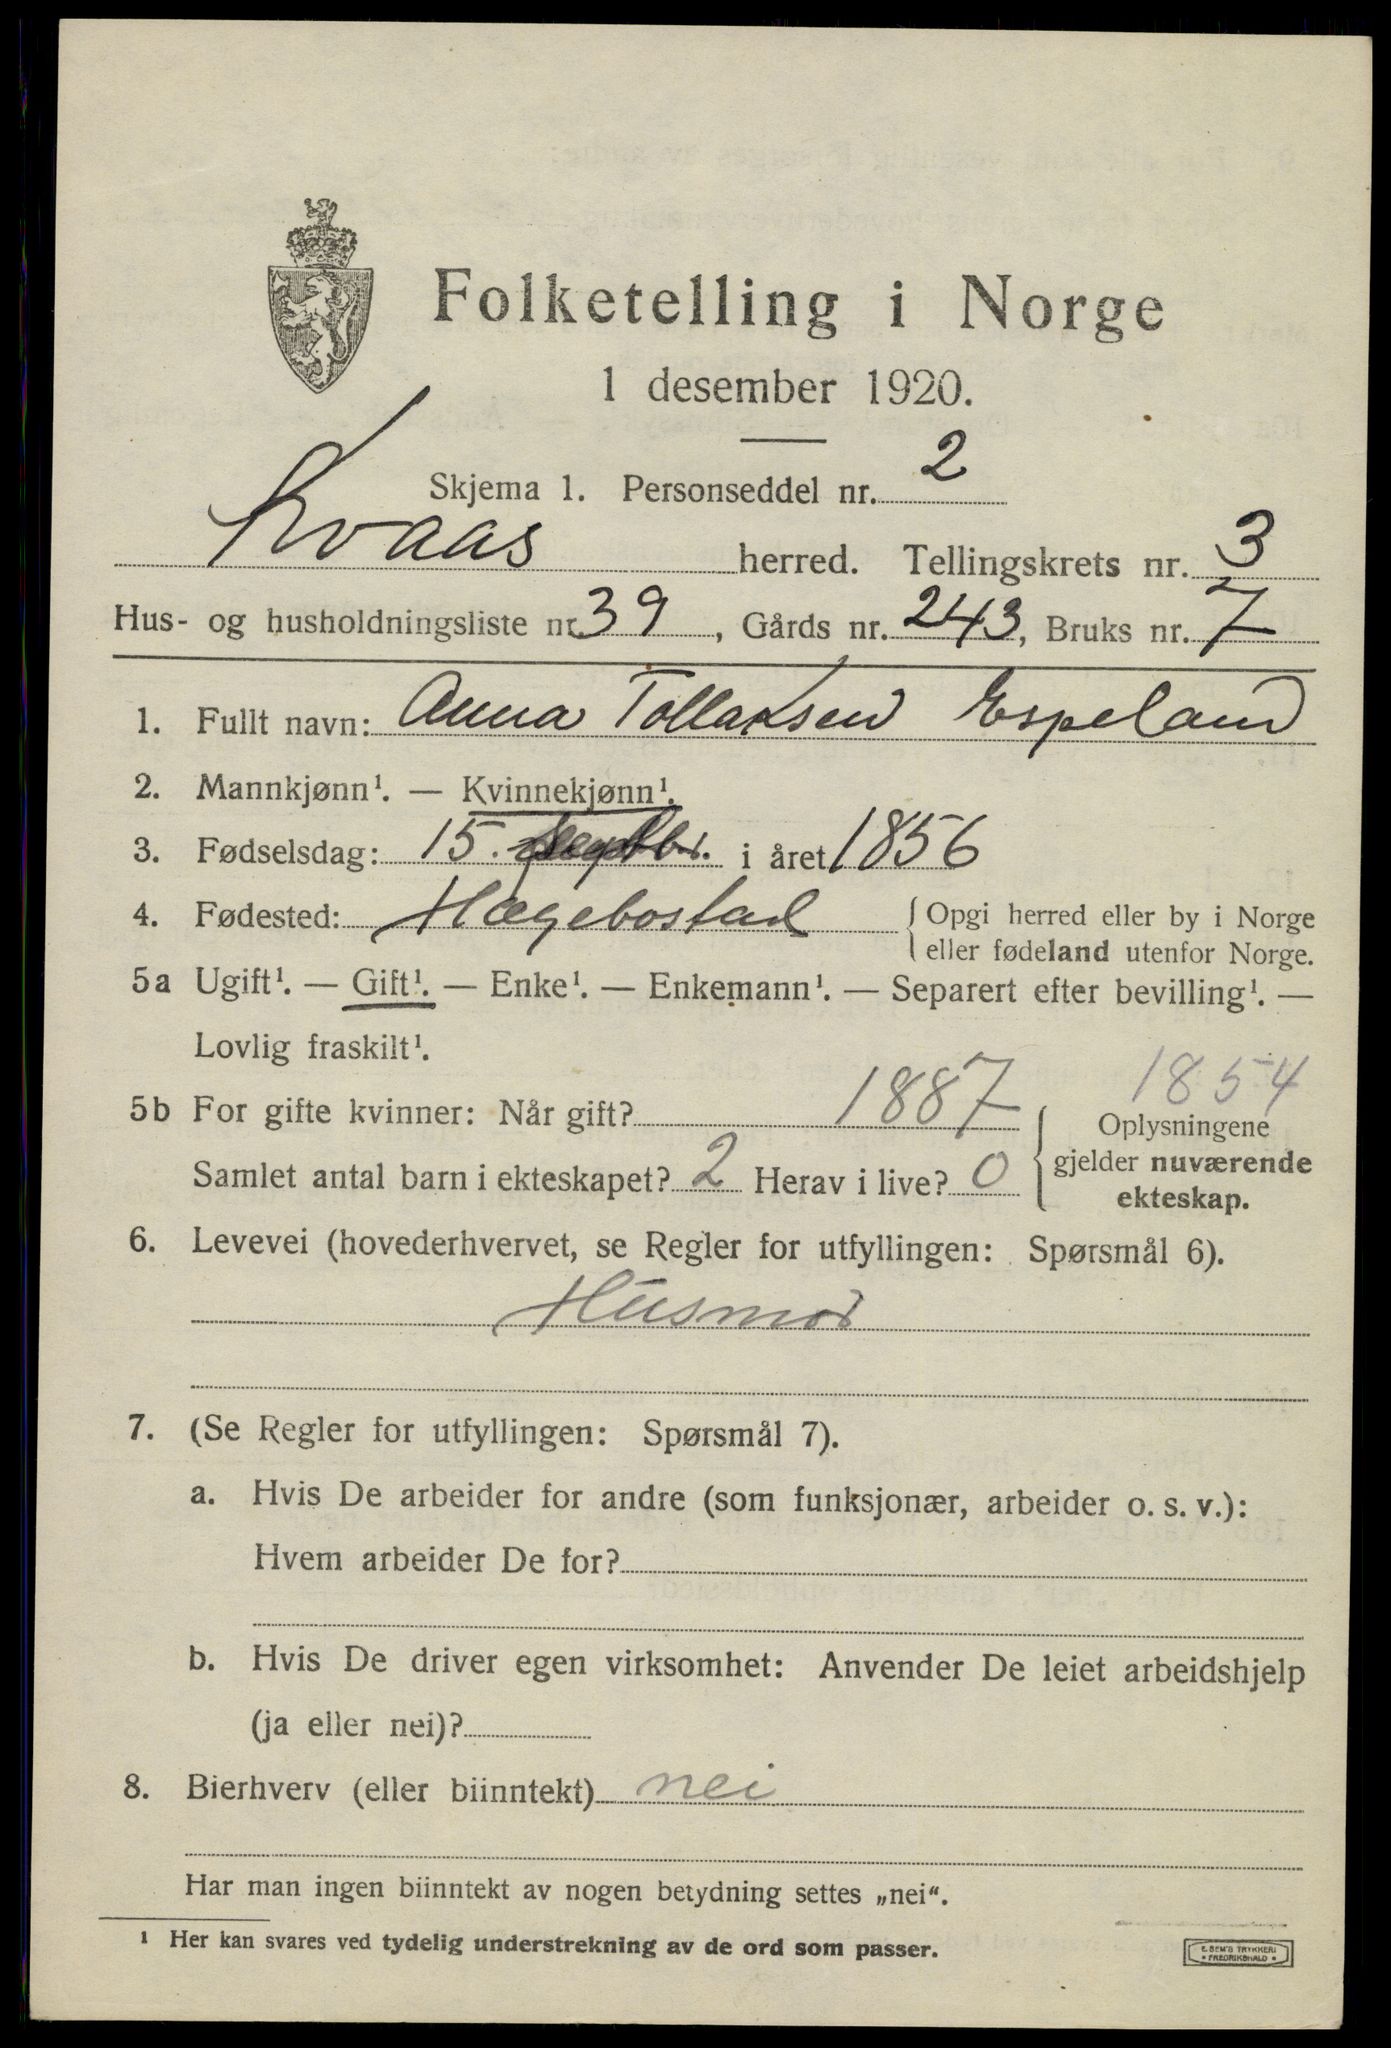 Folketelling i Norge
1 desember 1920.
Skjema 1. Personseddel nr. 2
Kvaas herred. Tellingskrets nr. 3
Hus- og husholdningsliste nr. 39, Gårds nr. 243, Bruks nr. 7
1. Fullt navn: Anna Tollaksen Espeland
2. Mannkjønn¹. — Kvinnekjønn¹.
3. Fødselsdag: 15. i året 1856
4. Fødested: Hægebostad { Opgi herred eller by i Norge
eller fødeland utenfor Norge.
5a Ugift¹. — Gift¹. — Enke¹. — Enkemann¹. — Separert efter bevilling¹. —
Lovlig fraskilt¹.
1854
5b For gifte kvinner: Når gift? 1887 { Oplysningene
gjelder nuværende
Samlet antal barn i ekteskapet? 2 Herav i live? 0 ekteskap.
6. Levevei (hovederhvervet, se Regler for utfyllingen: Spørsmål 6).
Husmor
7. (Se Regler for utfyllingen: Spørsmål 7).
a. Hvis De arbeider for andre (som funksjonær, arbeider o. s. v.):
Hvem arbeider De for?
b. Hvis De driver egen virksomhet: Anvender De leiet arbeidshjelp
(ja eller nei)?
8. Bierhverv (eller biinntekt) nei
Har man ingen biinntekt av nogen betydning settes „nei“.
¹ Her kan svares ved tydelig understrekning av de ord som passer.
E. SEM'S TRYKKERI
• FREDRIKSHALD •